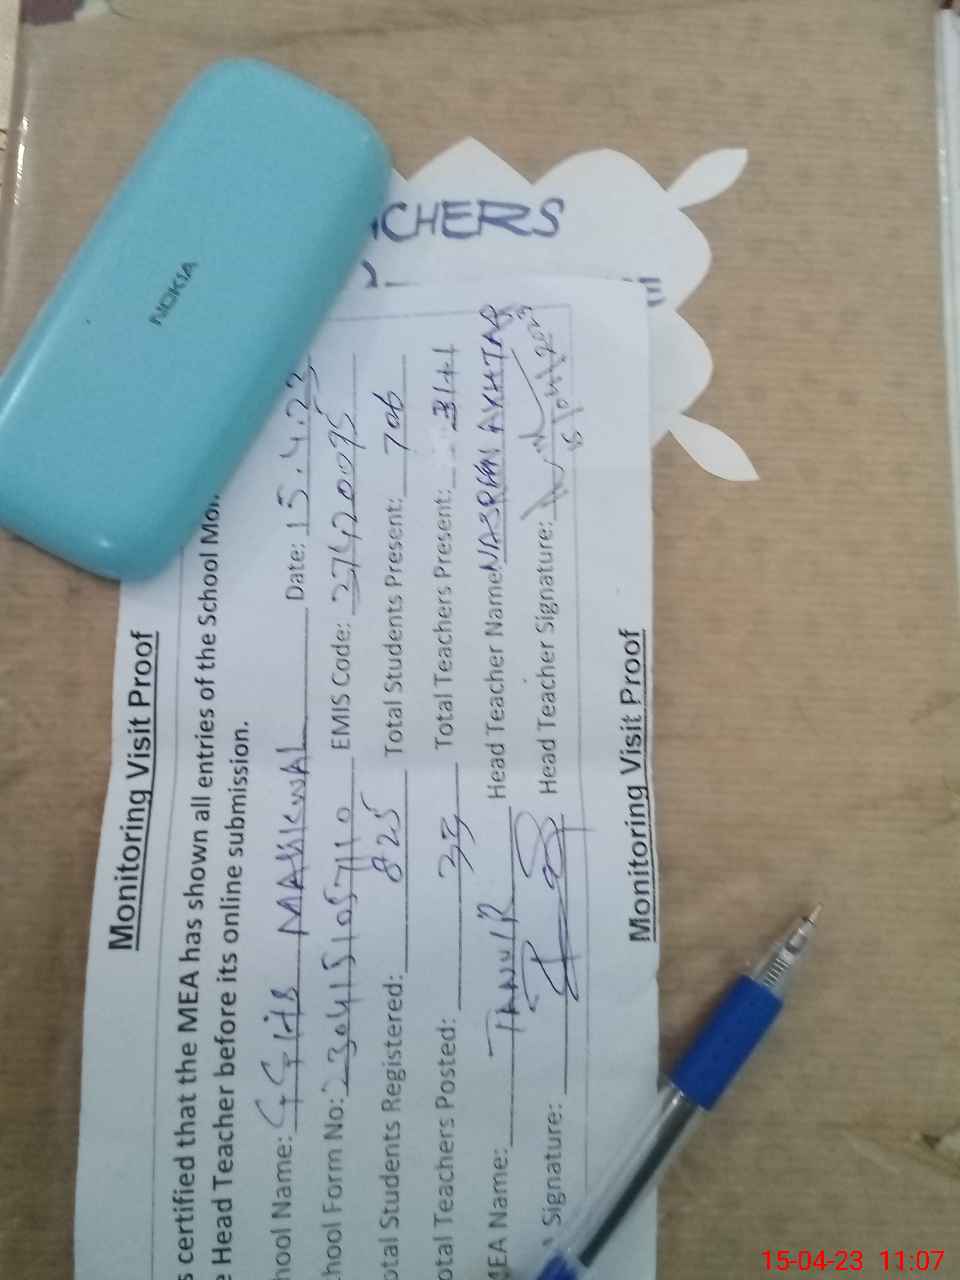 NOKIA
ACHERS
E
Monitoring Visit Proof
s certified that the MEA has shown all entries of the School Mon
e Head Teacher before its online submission.
hool Name: GGHS MAHKWAL Date: 15.4.23
chool Form No: EMIS Code: 37420095
otal Students Registered: 825 Total Students Present: 706
otal Teachers Posted: 33 Total Teachers Present:
MEA Name: TANVIR Head Teacher Name NASREEN AKHTAR
Signature: Head Teacher Signature: 15/04/2023
Monitoring Visit Proof
15-04-23 11:07